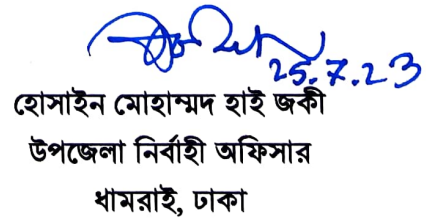 25.7.23
হোসাইন মোহাম্মদ হাই জকী
উপজেলা নির্বাহী অফিসার
ধামরাই, ঢাকা